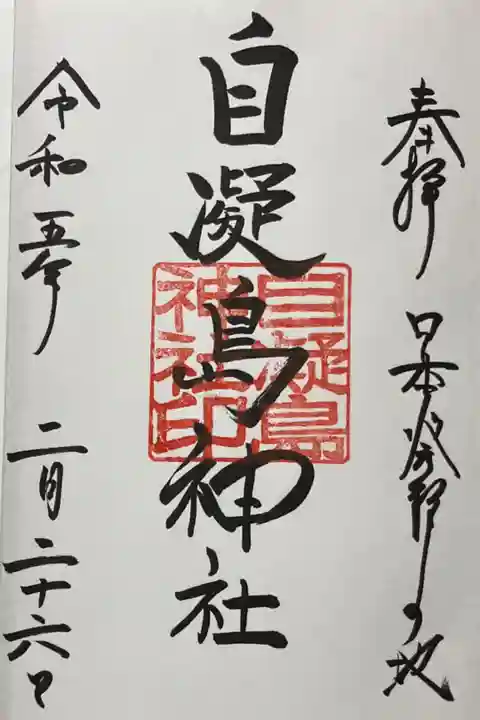 奉拝 日本発祥の地
自凝島神社
自凝島
神社印
令和五年 二月二十六日